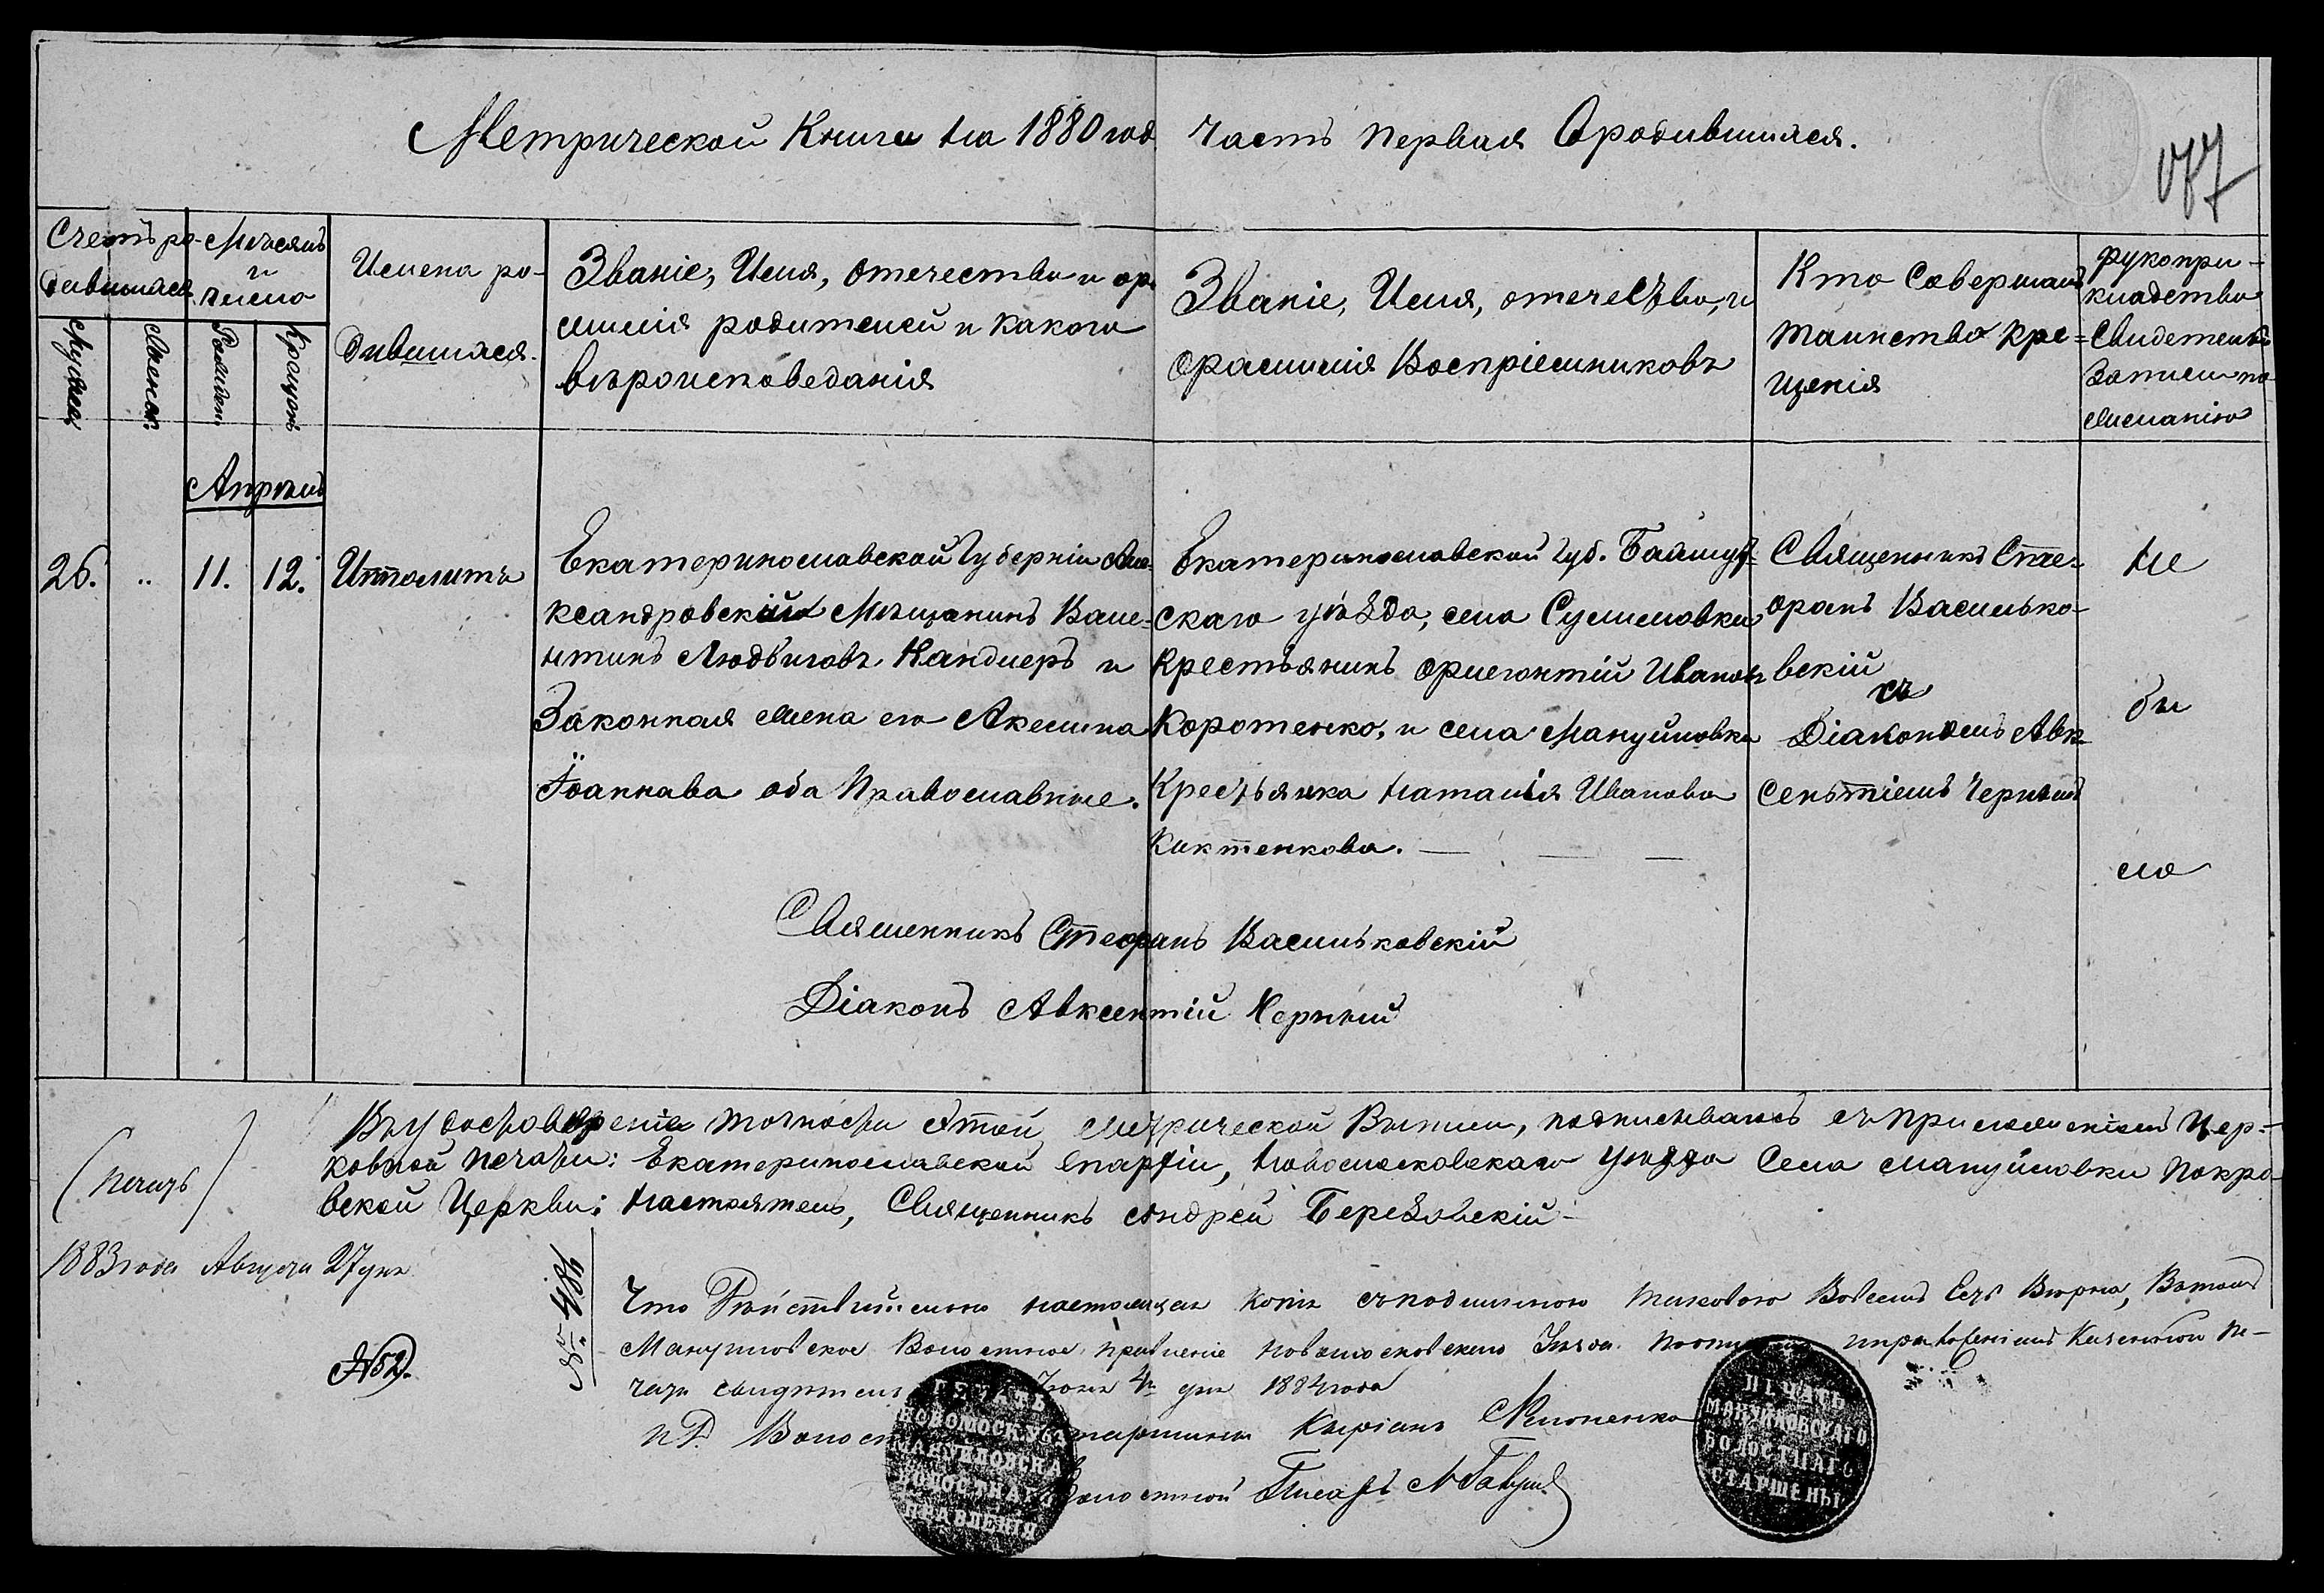 Метрической Книги на 1880 год Часть первая О родившихся.
Счетъ ро-
дившихся
Мужеск.
Женск.
Мѣсяцъ
и
число
Рожден.
Крещен.
Имена ро-
дившихся.
Званіе, Имя, отечество и фа-
милія родителей и какого
вѣроисповеданія
Званіе, Имя, отечество, и
фамилія Воспріемниковъ
Кто Совершалъ
таинство кре=
щенія
Рукопри-
кладство
Свидетелей
Записи по
желанію
Апрѣль
26.
..
11.
12.
Ипполитъ
Екатеринославской Губерніи Але-
ксандровскій Мѣщанинъ Вале-
нтинъ Людвиговъ Кандиеръ и
Законная жена его Акелина
Іоаннава оба Православные.
Екатеринославской Губ. Бахмут-
скаго уѣзда, села
Крестьянинъ Филегонтій Ивановъ
Коротенко, и села Мануйловки
Крестьянка Наталія Иванова
Киктенкова.
Священникъ Сте-
фанъ Василько-
вскій
съ
Діакономъ Авк-
сентіемъ Чернымъ
Не
бы
ло
Священникъ Стефанъ Васильковскій
Діаконъ Авксентій Черный
Въ удостовереніе точности этой метрической Выписи, подписываюсь съ приложеніемъ Цер=
ковной печати: Екатеринославской епархіи, Новомосковскаго уѣзда Села Мануйловки Покро-
вской Церкви: Настоятель, Священникъ Андрей Березовскій
(Печать)
1883 года Августа 27 дня
№ 52.
№ 486
Что настоящая копія съ подлинною таковою Во всемъ Верна, Въ томъ
Мануйловское Волостное правленіе Новомосковскаго Уѣзда Казенной пе-
чати Іюня 4 дня 1884 года
И.Д. Старшины Кипріанъ
Волостной Писарь
ПЕЧАТЬ
НОВОМОСК. УѢЗ.
МАНУЙЛОВСКА
ВОЛОСТНАГО
ПРАВЛЕНІЯ
ПЕЧАТЬ
МАНУЙЛОВСКАГО
ВОЛОСТНАГО
СТАРШЕНЫ